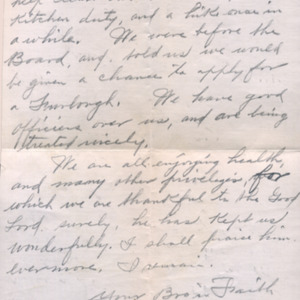 kitchen duty, and a hike once in
a while. We were before the
Board, and told us we would
be given a chance to apply for
a Furlough. We have good
officers over us, and are being
treated nicely.
We are all enjoying health,
and many other privileges for
which we are thankful to the Good
Lord surely, he has kept us
wonderfully. I shall praise him
evermore. I remain.
Your Bro in Faith